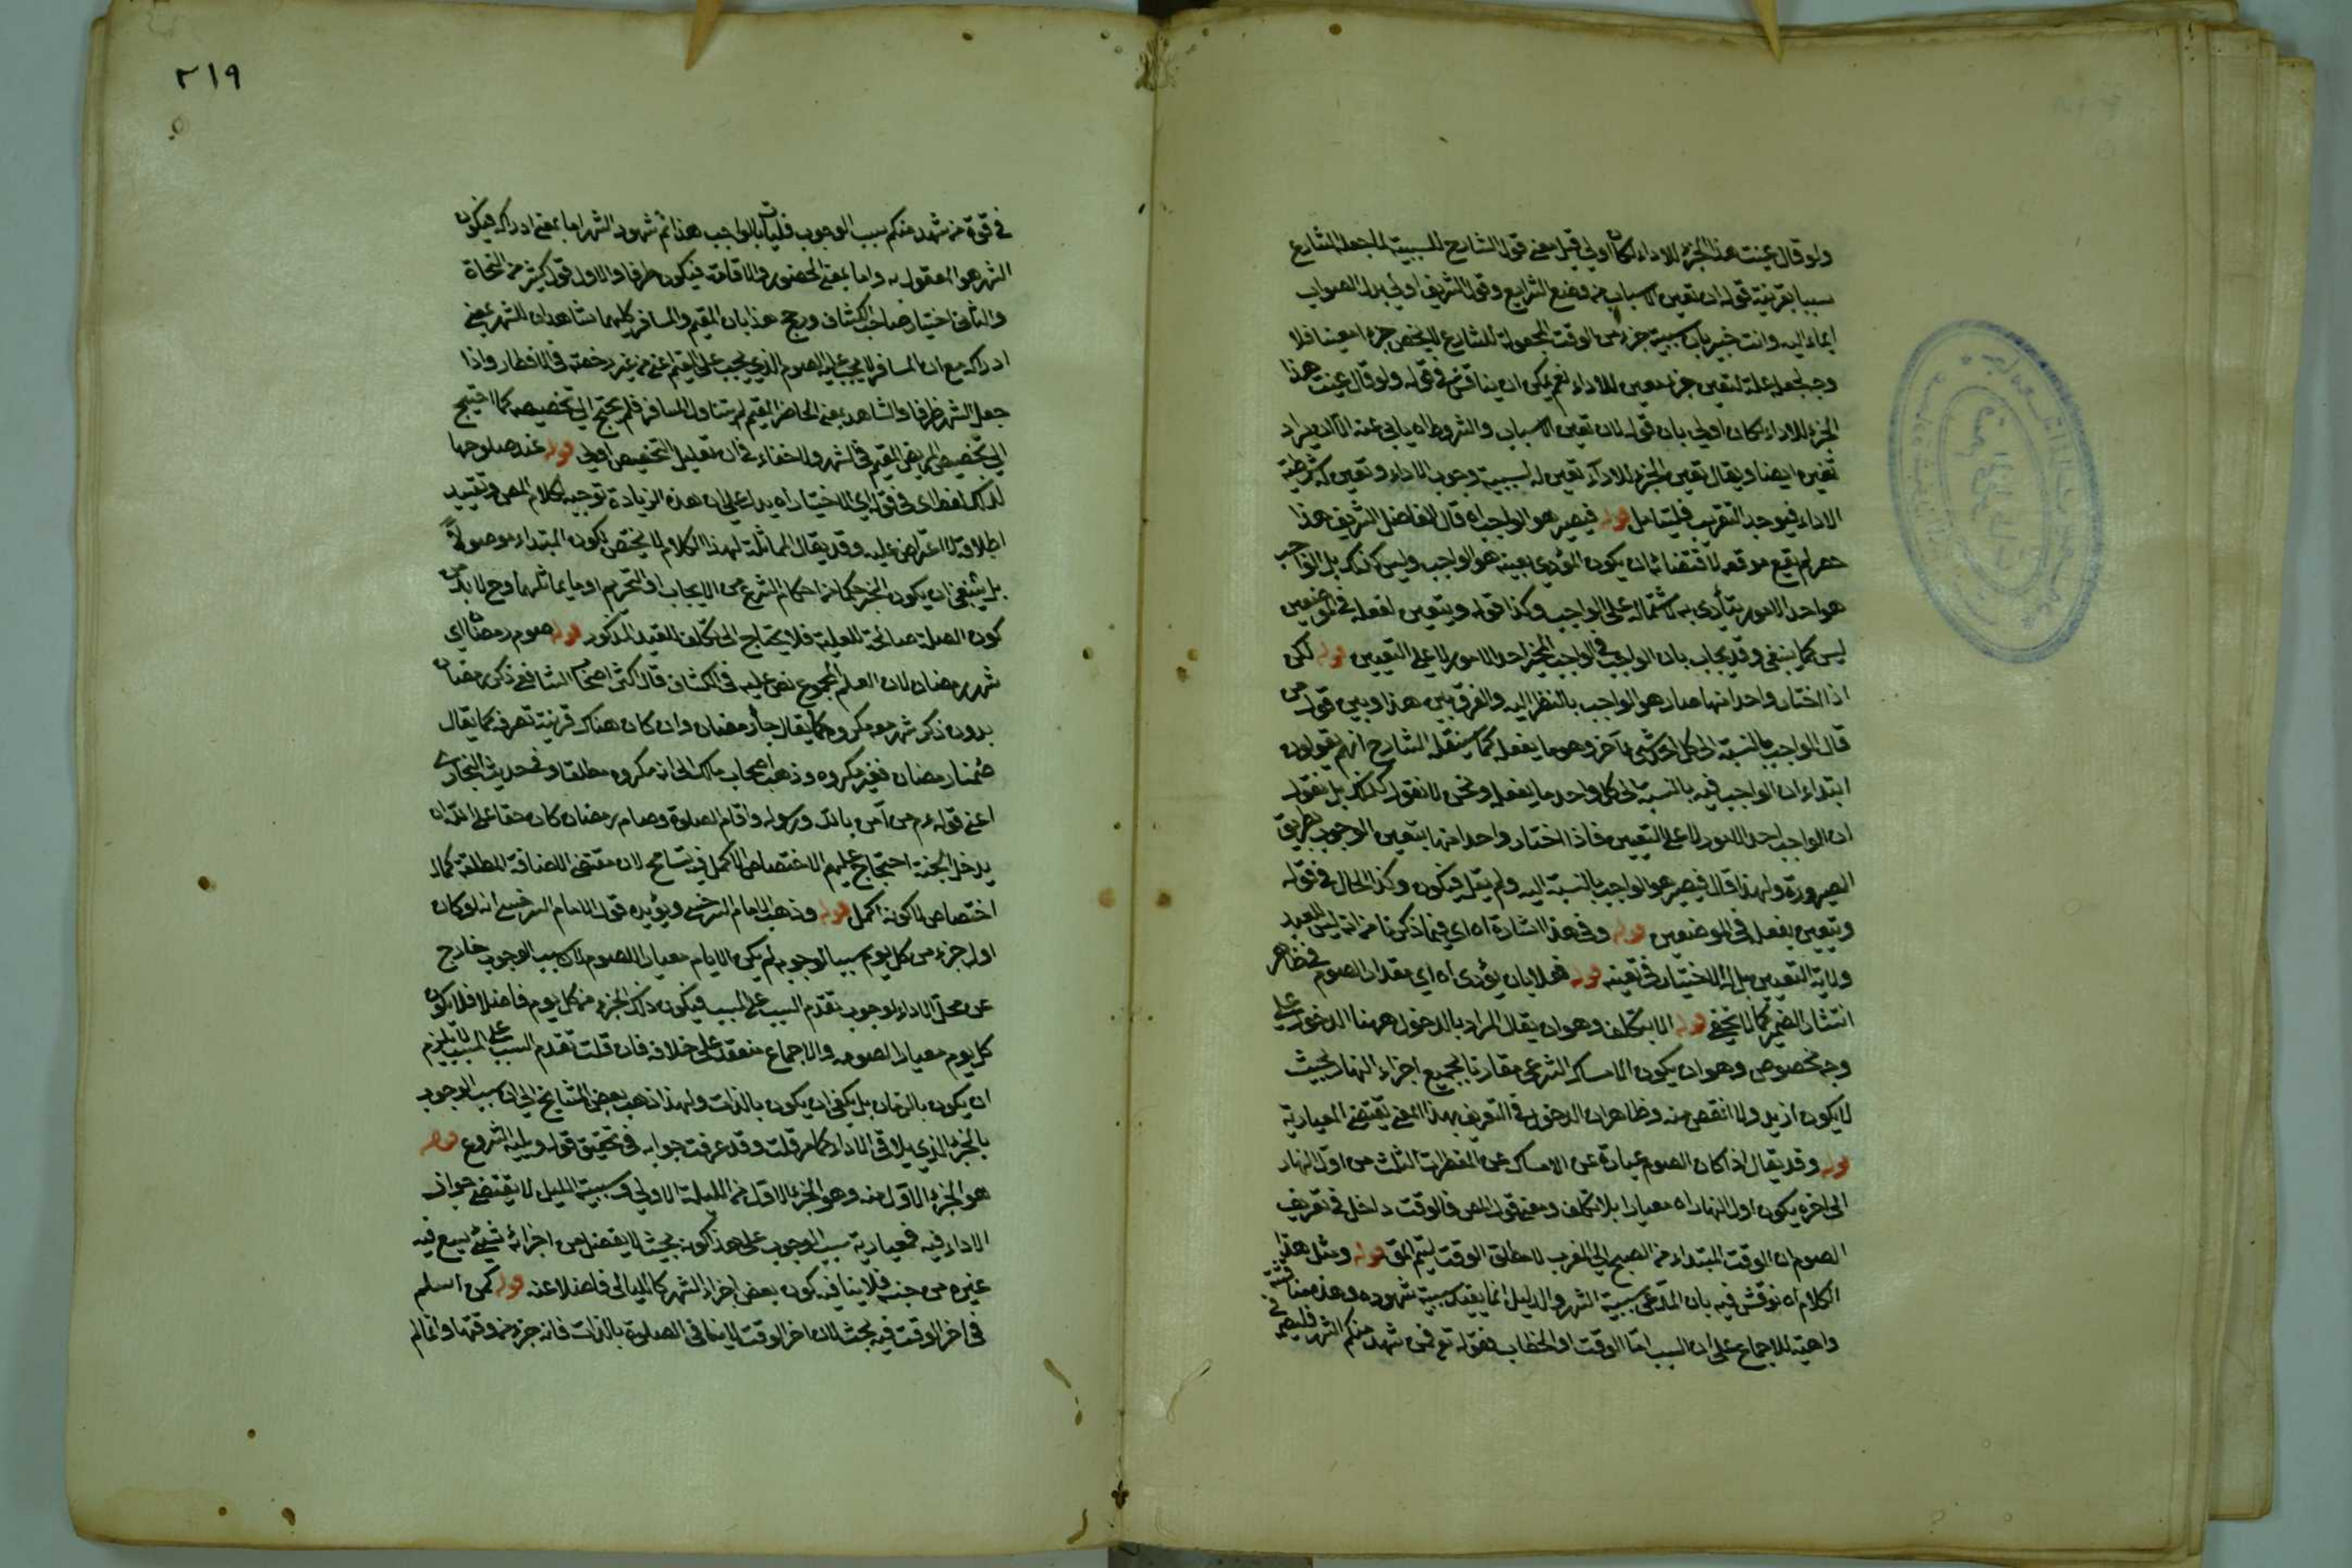 ولو قال عينت هذا الجزء للاداء لكان اولي قيل معنى قول الشارح للسببية لما جعله الشارع
سببا بقرينة قوله ان تعين الاسباب من وضع الشرايع وقول الشريف اولي بدل الصواب
ايماء اليه وانت خبير بان سببية جزء من الوقت المجعولة للشارع لا يخص جزء معينا فلا
وجه لجعله علة لتعين جزء معين للاداء نعم يمكن ان يناقش في قوله ولو قال عينت هذا
الجزء للاداء لكان اولي بان قوله لان تعين الاسباب والشروط اه يابى عنه الا ان يراد
تعينه ايضا ويقال تعين الجزء للاداء تعين له لسببية وجوب الاداء وتعين لشرطية
الاداء فيوجد التقريب فليتامل قوله فيصير هو الواجب اه قال الفاضل الشريف هذا
حصر لم يقع موقعه لاقتضائه ان يكون المؤدى بعينه هو الواجب وليس كذلك بل الواجب
هو احد الامور يتأدى به لاشتماله على الواجب وكذا قوله ويتعين بفعله في الموضعين
ليس كما ينبغي وقد يجاب بان الواجب في الواجب المخير احد الامور لا على التعيين قوله لكن
اذا اختار واحدا منها صار هو الواجب بالنظر اليه والفرق بين هذا وبين قول من
قال الواجب بالنسبة الى كل احد شئ آخر وهو ما يفعله كما سينقله الشارح انهم يقولون
ابتداء ان الواجب فيه بالنسبة الى كل واحد ما يفعله ونحن لا نقول كذلك بل نقول
ان الواجب احد الامور لا على التعيين فاذا اختار واحدا منها يتعين الوجوب بطريق
الصيرورة ولهذا قال فيصير هو الواجب بالنسبة اليه ولم يقل فيكون وكذا الحال في قوله
ويتعين بفعله في الموضعين قوله وفي هذا اشارة اه اي فيما ذكرنا من انه ليس للعبد
ولاية التعيين بل له الاختيار في تعينه قوله فعلا بان يؤدى اه اي مقدار الصوم ففي ظاهر
انتشار الضمير كما لا يخفى قوله الا بتكلف وهو ان يقال المراد بالدخول ههنا الدخول على
وجه مخصوص وهو ان يكون الامساك الشرعى مقارنا بجميع اجزاء النهار بحيث
لا يكون ازيد ولا انقص منه وظاهر ان الدخول في التعريف بهذا المعنى يقتضي المعيارية
قوله وقد يقال اذا كان الصوم عبارة عن الامساك عن المفطرات الثلث من اول النهار
الى اخره يكون اول النهار اه معيارا بلا تكلف ومعنى قول المص فالوقت داخل في تعريف
الصوم ان الوقت المبتداء من الصبح الى الغرب لا مطلق الوقت ليتم المق قوله ومثل هذا
الكلام اه نوقش فيه بان المدعى سببية الشهر والدليل انما يفيد سببية شهوده وهذه مناقشة
واهية للاجماع على ان السبب اما الوقت او الخطاب فقوله تع فمن شهد منكم الشهر فليصمه في
٢١٩
في قوة من شهد منكم سبب الوجوب فليأت بالواجب هذا ثم شهود الشهر اما بمعنى ادراكه فيكون
الشهر هو المفعول به واما بمعنى الحضور والاقامة فيكون ظرفا والاول قول كثير من النحاة
والثاني اختيار صاحب الكشاف ورجح هذا بان المقيم والمسافر كليهما شاهدان للشهر بمعنى
ادراكه مع ان المسافر لا يجب عليه الصوم الذي يجب على المقيم اعنى من غير رخصة في الافطار واذا
جعل الشهر ظرفا والشاهد بمعنى الحاضر المقيم لم يتناول المسافر فلم يحتج الى تخصيصه كما احتيج
الى تخصيص المريض المقيم في الشهر ولا خفاء في ان تقليل التخصيص اولي قوله عند صلوحها
لذلك لفظ اى في قوله اي الاختيار اه يدل على ان هذه الزيادة توجيه لكلام المص وتقييد
اطلاقه لا اعتراض عليه وقد يقال المماثلة لهذا الكلام لا يختص بكون المبتداء موصولا
بل ينبغي ان يكون الخبر حكما من احكام الشرع من الايجاب او التحريم او ما يماثلهما وح لا بد من
كون الصلة صالحة للعلية فلا يحتاج الى تكلف القيد المذكور قوله صوم رمضان اي
شهر رمضان لان العلم المجموع نص عليه في الكشاف قال اكثر اصحاب الشافعي ذكر رمضان
بدون ذكر شهر معه مكروه كما يقال جاء رمضان وان كان هناك قرينة تصرفه كما يقال
صمنا رمضان فغير مكروه وذهب اصحاب مالك الى انه مكروه مطلقا وفي حديث البخارى
اعنى قوله ءم من آمن بالله ورسوله واقام الصلوة وصام رمضان كان حقا على الله ان
يدخله الجنة احتجاج عليهم الاختصاص الاكمل فيه تسامح لان مقتضى الاضافة المطلقة كمال
اختصاص لا كونه اكمل قوله وذهب الامام السرخسي ويؤيده قول الامام السرخسي انه لو كان
اول جزء من كل يوم سببا لوجوبه لم يكن الايام معيارا للصوم لان سبب الوجوب خارج
عن محل الاداء لوجوب تقدم السبب على المسبب فيكون ذلك الجزء من كل يوم فاضلا فلا يكون
كل يوم معيارا لصومه والاجماع منعقد على خلافه فان قلت تقدم السبب على المسبب لا يلزم
ان يكون بالزمان بل يكفى ان يكون بالذات ولهذا ذهب بعض المشايخ الى ان سبب الوجوب
بالجزء الذي يلاقي الاداء كما مر قلت وقد عرفت جوابه في تحقيق قوله ويليه الشروع قوله
هو الجزء الاول منه وهو الجزء الاول من الليلة الاولي وسببية الليل لا يقتضى جواز
الاداء فيه فمعيارية سبب الوجوب على هذا كونه بحيث لا يفضل من اجزائه شئ يسع فيه
غيره من جنسه فلا ينافيه كون بعض اجزاء الشهر كالليالى فاضلا عنه قوله كمن اسلم
في اخر الوقت فيه بحث لان اخر الوقت لا ينافى الصلوة بالذات فانه جزء من وقتها وانما لم